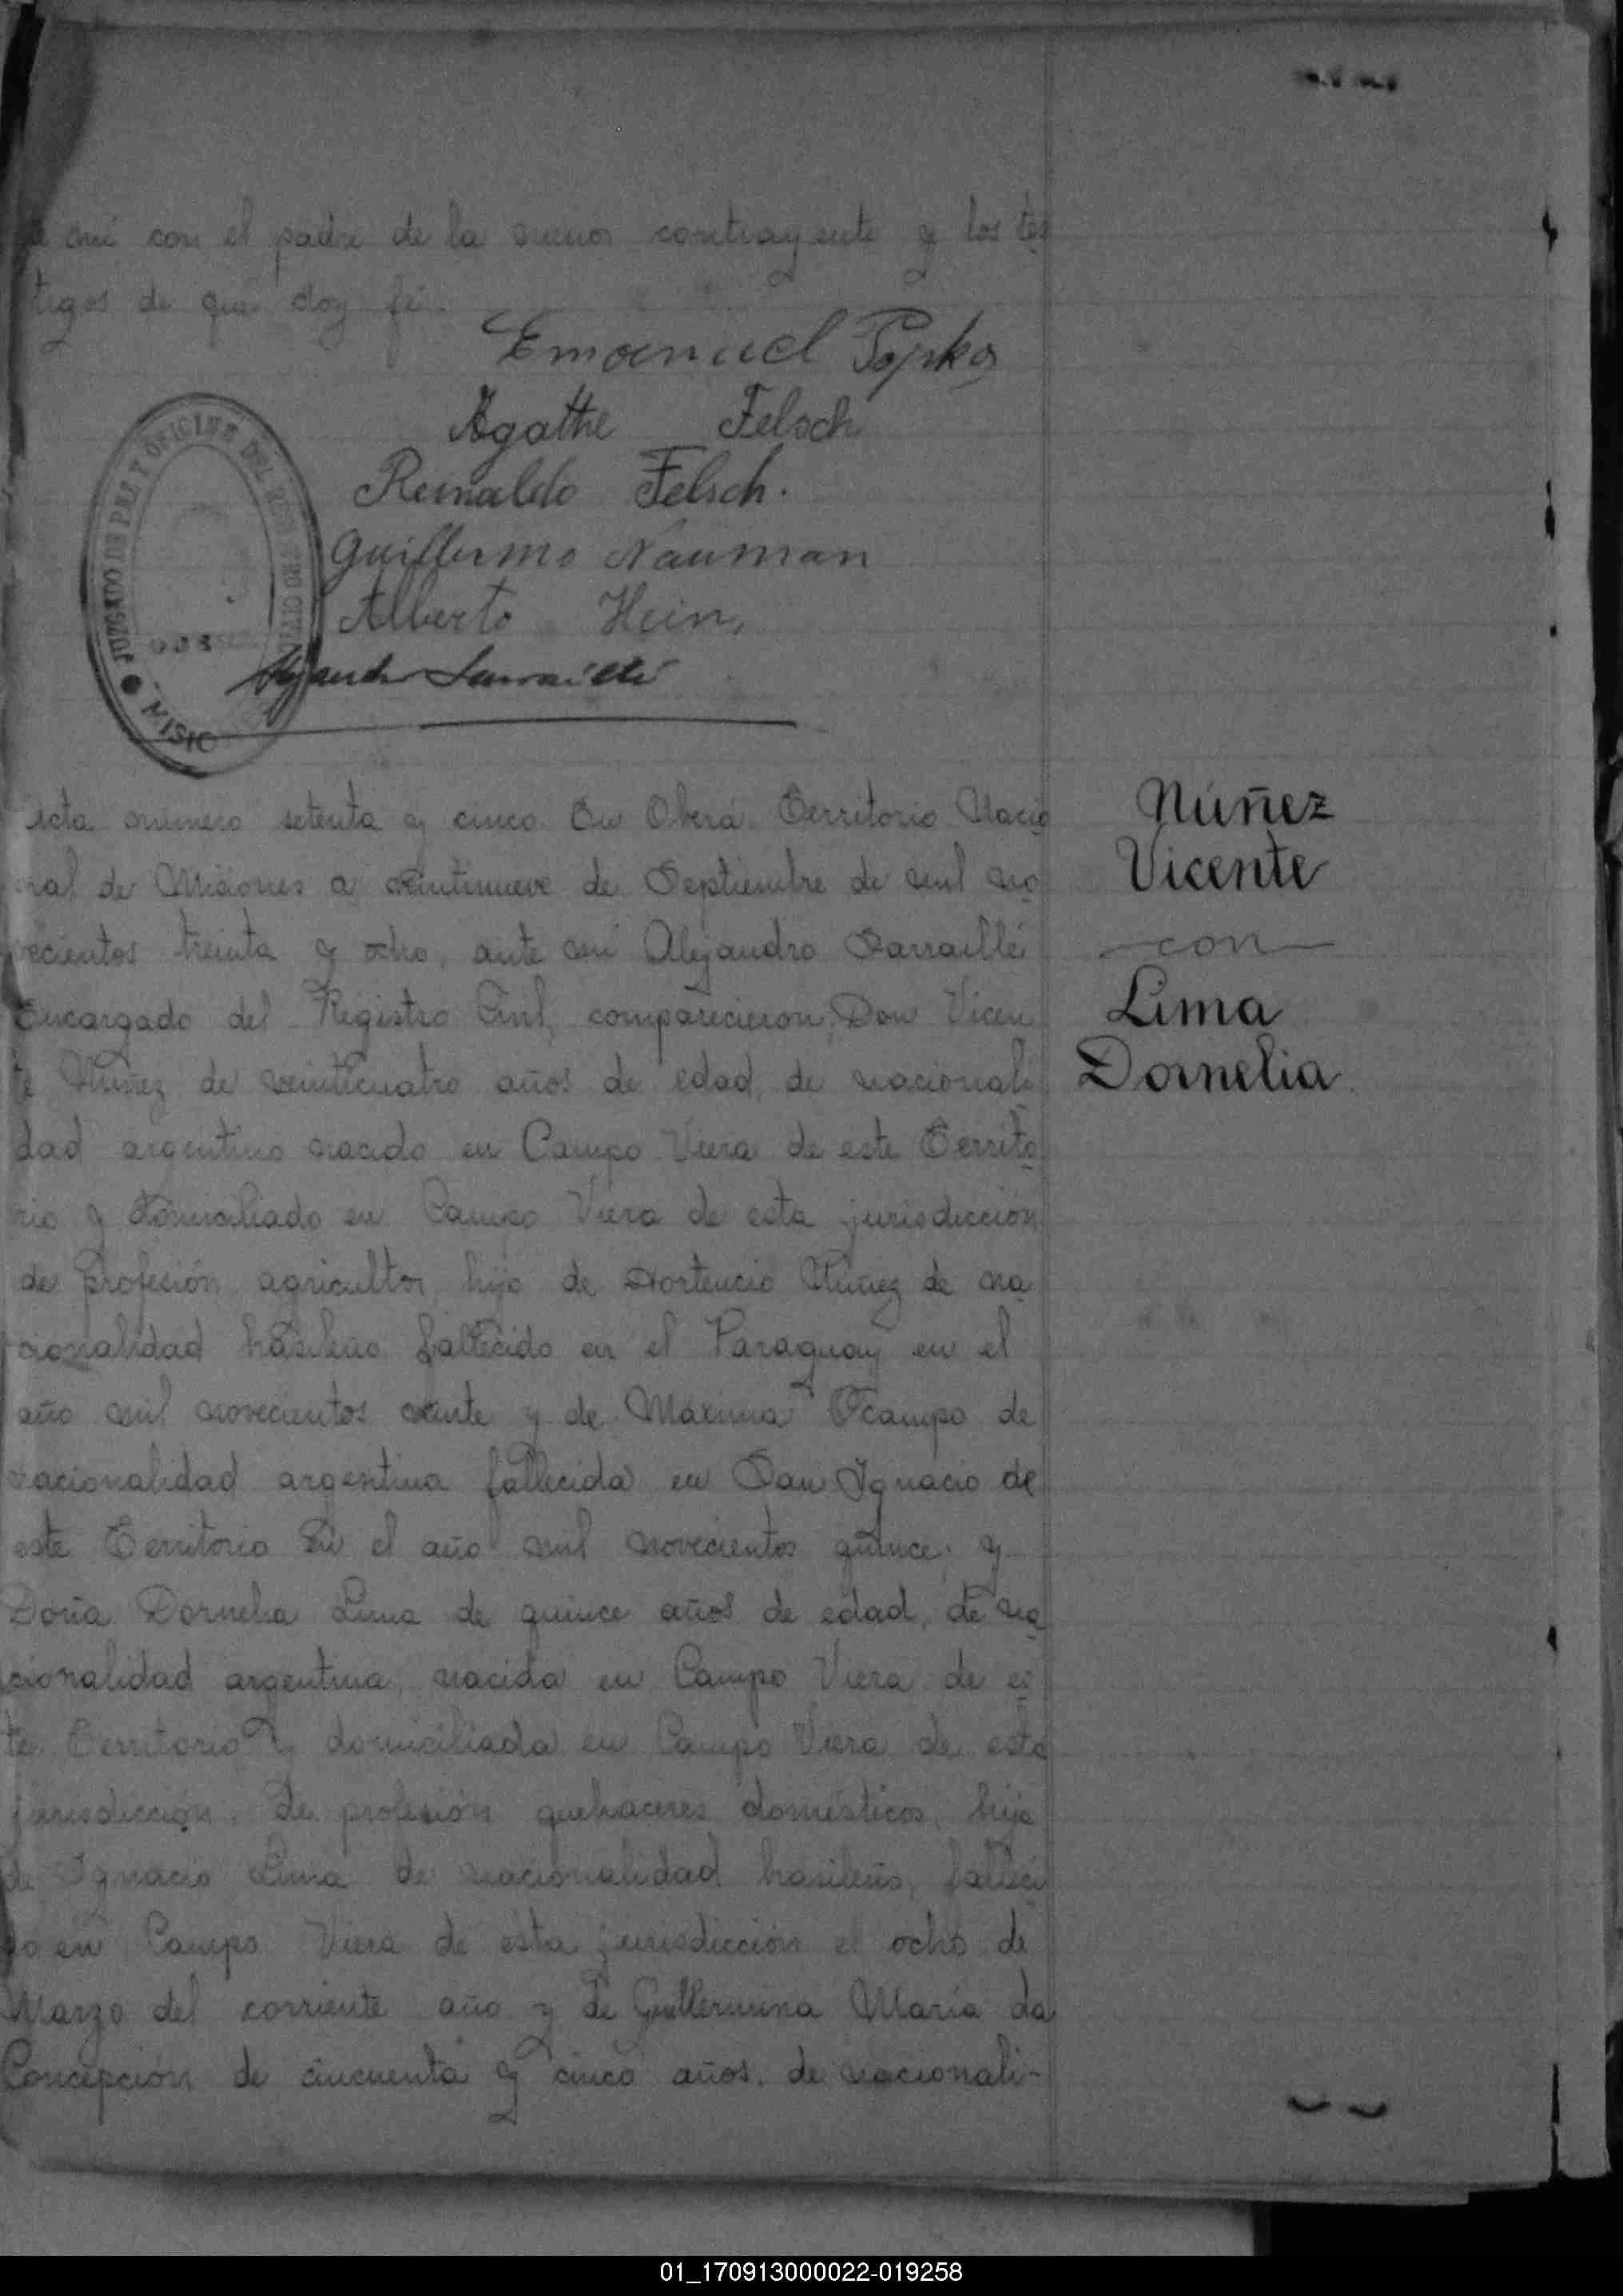 mi con el padre de la menor contrayente y los tes
tigos de que doy fé.
Emanuel Popko
Agathe Felsch
Reinaldo Felsch.
Guillermo Nauman
Alberto Hein
JUZGADO DE PAZ Y OFICINA DEL REGISTRO CIVIL
MISIO
Acta número setenta y cinco. En Oberá. Territorio Nacio
nal de Misiones a veintinueve de Septiembre de mil no
vecientos treinta y ocho, ante mí Alejandro Sarraillé
Encargado del Registro Civil, comparecieron, Don Vicen
te Núñez de veinticuatro años de edad, de nacionali
dad argentino nacido en Campo Viera de este Territo
rio y domiciliado en Campo Viera de esta jurisdicción
de profesión agricultor, hijo de Hortencio Núñez de na
cionalidad brasileño fallecido en el Paraguay en el
año mil novecientos veinte y de Máxima Ocampo de
nacionalidad argentina fallecida en San Ignacio de
este Territorio en el año mil novecientos quince; y
Doña Dornelia Lima de quince años de edad, de na
cionalidad argentina, nacida en Campo Viera de es
te Territorio y domiciliada en Campo Viera de esta
jurisdicción. de profesión quehaceres domésticos, hija
de Ignacio Lima de nacionalidad brasileño, falleci
do en Campo Viera de esta jurisdicción el ocho de
Marzo del corriente año y de Guillermina María da
Concepción de cincuenta y cinco años. de nacionali-
Núñez
Vicente
con
Lima
Dornelia
01_170913000022-019258